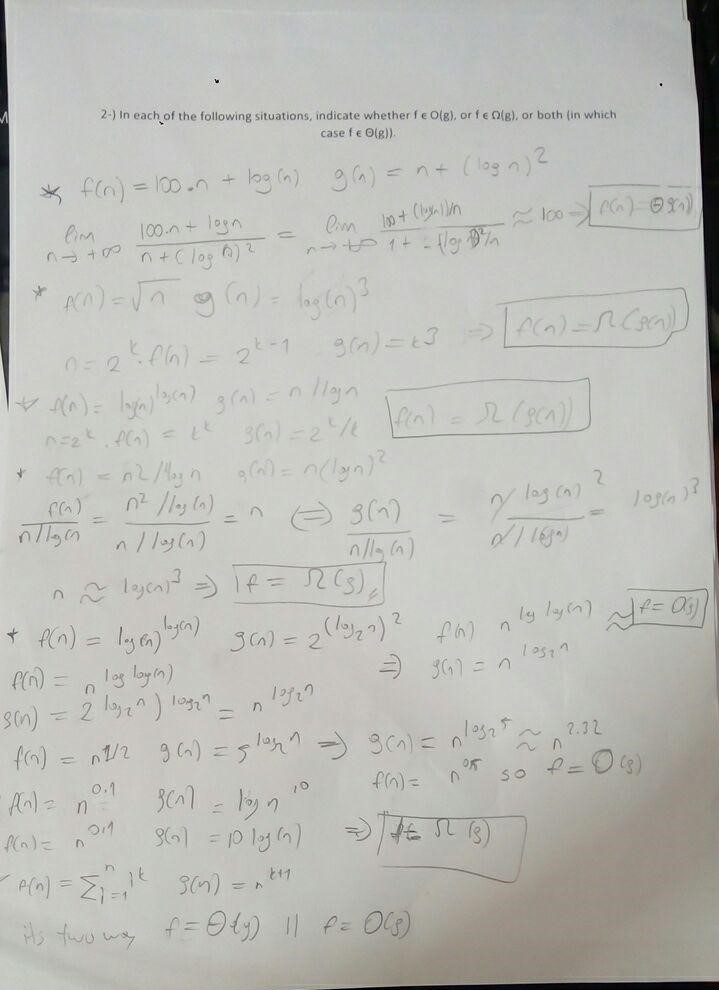 2-) In each of the following situations, indicate whether f ∈ O(g), or f ∈ Ω(g), or both (in which
case f ∈ Θ(g)).
* f(n) = 100.n + log(n) g(n) = n + (log n)^2
lim n→+∞ (100.n + log n)/(n + (log n)^2) = lim n→+∞ (100 + (log n)/n)/(1 + (log n)^2/n) ≈ 100 ⇒ f(n) = Θ g(n)
* f(n) = √n g(n) = log(n)^3
n = 2^k . f(n) = 2^k-1 g(n) = k3 ⇒ f(n) = Ω(g(n))
* f(n) = log(n)^log(n) g(n) = n/log n
n = 2^k . f(n) = k^k g(n) = 2^k/k f(n) = Ω(g(n))
* f(n) = n2/log n g(n) = n(log n)^2
f(n)/(n/log(n)) = (n^2/log(n))/(n/log(n)) = n ⇔ g(n)/(n/log(n)) = (n log(n)^2)/(n/log n) = log(n)^3
n ≈ log(n)^3 ⇒ f = Ω(g)
* f(n) = log(n)^log(n) g(n) = 2^(log2 n)^2 f(n) n^log log(n) ≈ f = O(g)
f(n) = n^log log(n) ⇒ g(n) = n^log2 n
g(n) = 2^log2 n)^log2 n = n^log2 n
f(n) = n^1/2 g(n) = 5^log2 n ⇒ g(n) = n^log2 5 ≈ n^2.32
f(n) = n^0.5 so f = O(g)
f(n) = n^0.1 g(n) = log n^10
f(n) = n^0.1 g(n) = 10 log(n) ⇒ f = Ω(g)
f(n) = Σ_i=1^n i^k g(n) = n^k+1
its two way f = Θ(g) || f = O(g)